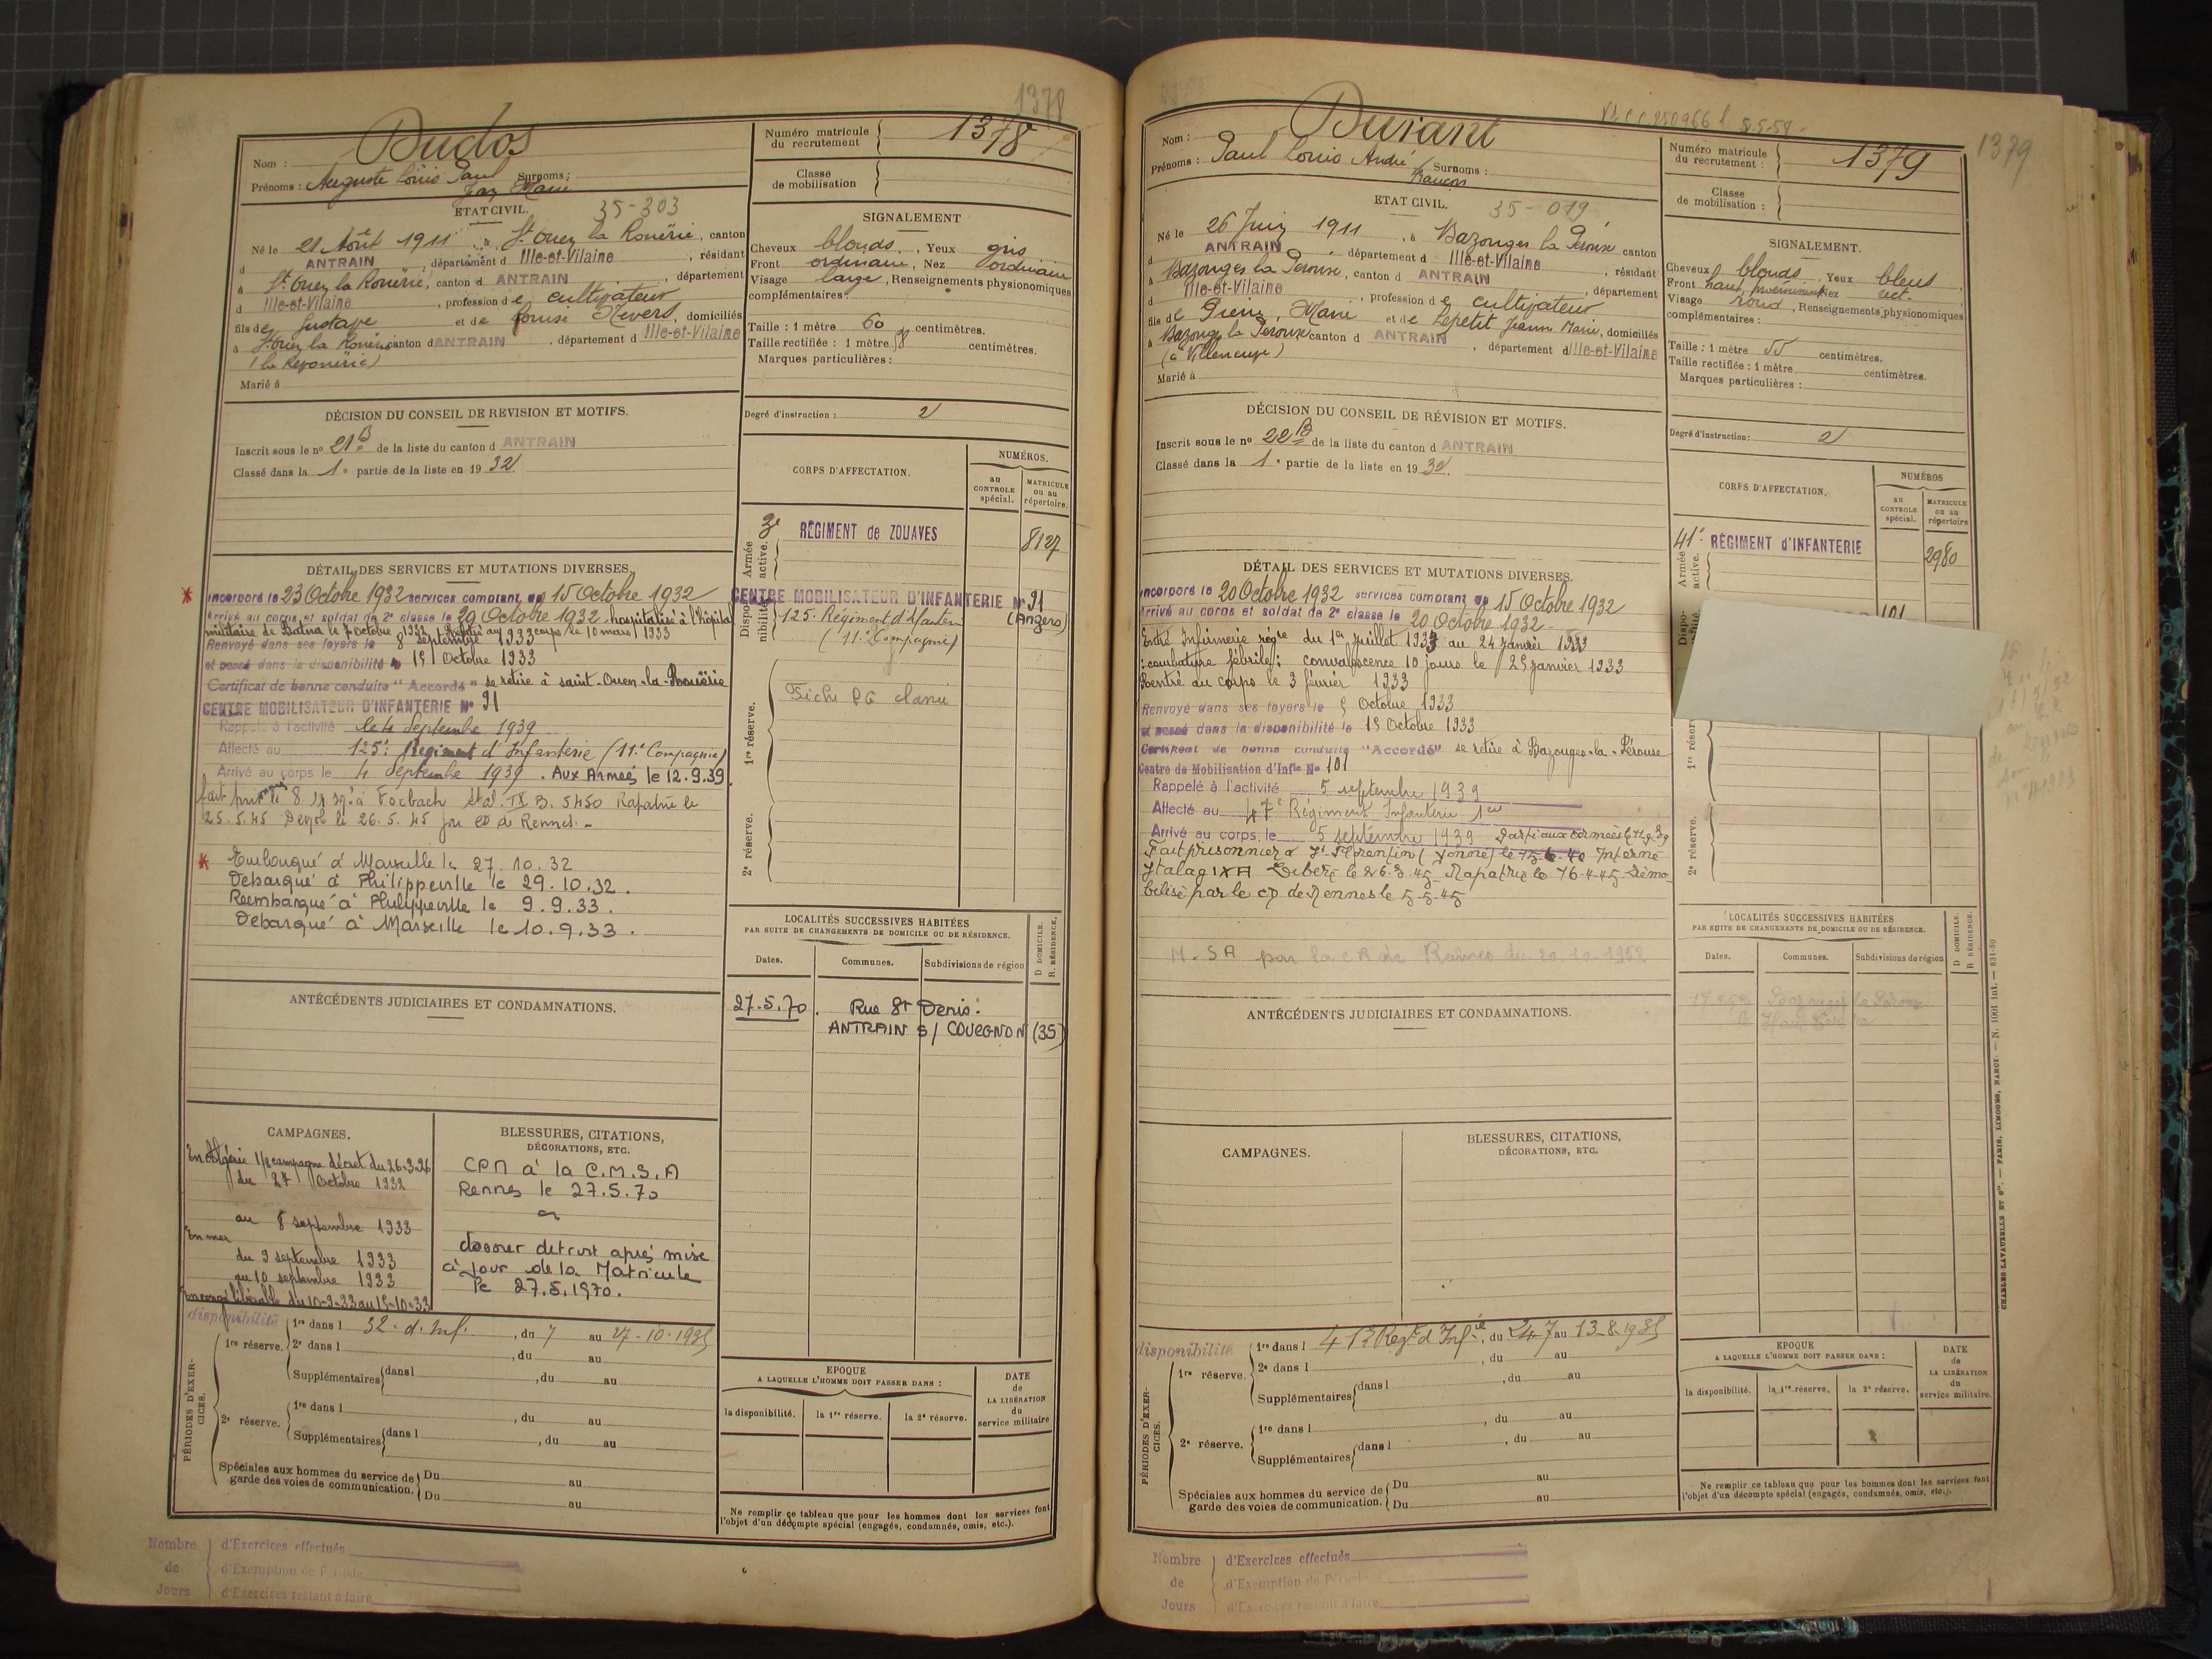 1378
Nom : Duclos
Prénoms : Auguste Louis Paul Surnoms :
Jean Marie
Numéro matricule du recrutement 1378
Classe de mobilisation
ETAT CIVIL. 35-303
Né le 21 Août 1911, à St Ouen la Rouërie, canton
d ANTRAIN, département d Ille-et-Vilaine, résidant
à St Ouen la Rouërie, canton d ANTRAIN, département
d Ille-et-Vilaine, profession de cultivateur
fils de Gustave et de Louise Nevers, domiciliés
à St Ouen la Rouërie canton d ANTRAIN, département d Ille-et-Vilaine
Marié à
SIGNALEMENT
Cheveux blonds, Yeux gris
Front ordinaire, Nez ordinaire
Visage large, Renseignements physionomiques
complémentaires :
Taille : 1 mètre 60 centimètres.
Taille rectifiée : 1 mètre 58 centimètres.
Marques particulières :
Degré d'instruction : 2
DÉCISION DU CONSEIL DE REVISION ET MOTIFS.
Inscrit sous le n° 21 B de la liste du canton d ANTRAIN
Classé dans la 1e partie de la liste en 1932
CORPS D'AFFECTATION.
NUMÉROS.
au CONTROLE spécial.
MATRICULE ou au répertoire.
Armée active.
3e RÉGIMENT de ZOUAVES 8127
Disponibilité
CENTRE MOBILISATEUR D'INFANTERIE N° 91
125e Régiment d'Infanterie (Angers)
(11e Compagnie)
1re réserve.
Fiche PG classée
2e réserve.
DÉTAIL DES SERVICES ET MUTATIONS DIVERSES.
Incorporé le 23 Octobre 1932 services comptant du 15 Octobre 1932
Arrivé au corps et soldat de 2e classe le 29 Octobre 1932. hospitalisé à l'hôpital
militaire de Batna le 7 octobre 1932 Rentré au corps le 10 mars 1933
Renvoyé dans ses foyers le 8 septembre 1933
et passé dans la disponibilité le 15 Octobre 1933
Certificat de bonne conduite "Accordé" se retire à Saint-Ouen-la-Rouërie
CENTRE MOBILISATEUR D'INFANTERIE N° 91
Rappelé à l'activité le 4 Septembre 1939
Affecté au 125e Régiment d'Infanterie (11e Compagnie)
Arrivé au corps le 4 Septembre 1939. Aux Armées le 12.9.39.
à Focbach Stal. IX B. 5450 Rapatrié le
25.5.45 le 26.5.45 de Rennes.
Embarqué à Marseille le 27.10.32
Débarqué à Philippeville le 29.10.32.
Reembarqué à Philippeville le 9.9.33.
Débarqué à Marseille le 10.9.33.
LOCALITÉS SUCCESSIVES HABITÉES
PAR SUITE DE CHANGEMENTS DE DOMICILE OU DE RÉSIDENCE.
D DOMICILE. R. RÉSIDENCE.
Dates. Communes. Subdivisions de région
27.5.70. Rue St Denis.
ANTRAIN S/ COUEGNON (35)
ANTÉCÉDENTS JUDICIAIRES ET CONDAMNATIONS.
CAMPAGNES.
En Algérie 1/2 campagne décret du 26-3-26
du 27 Octobre 1932
au 8 septembre 1933
En mer
du 9 septembre 1933
au 10 septembre 1933
En congé libérable du 10-9-33 au 15-10-33
BLESSURES, CITATIONS,
DÉCORATIONS, ETC.
CPM à la C.M.S.A
Rennes le 27.5.70
dossier detruit après mise
à jour de la Matricule
le 27.5.1970.
PÉRIODES D'EXERCICES.
disponibilité
1re réserve.
1re dans l 32e d. Inf., du 7 au 27-10-1935
2e dans l , du au
Supplémentaires dans l , du au
2e réserve.
1re dans l , du au
Supplémentaires dans l , du au
Spéciales aux hommes du service de garde des voies de communication.
Du au
Du au
EPOQUE
A LAQUELLE L'HOMME DOIT PASSER DANS :
la disponibilité. la 1re réserve. la 2e réserve.
DATE de LA LIBÉRATION du service militaire
Ne remplir ce tableau que pour les hommes dont les services font
l'objet d'un décompte spécial (engagés, condamnés, omis, etc.).
Nombre de Jours
d'Exercices effectués
d'Exemption de Période
d'Exercices restant à faire
8.5.58
1379
Nom : Durant
Prénoms : Paul Louis André Surnoms :
François
Numéro matricule du recrutement : 1379
Classe de mobilisation :
ETAT CIVIL. 35-019
Né le 26 Juin 1911, à Bazouges la Perouse canton
d ANTRAIN, département d Ille-et-Vilaine, résidant
à Bazouges la Perouse, canton d ANTRAIN, département
d Ille-et-Vilaine, profession de cultivateur
fils de Pierre, Marie et de Lepetit Jeanne Marie, domiciliés
à Bazouges la Perouse canton d ANTRAIN, département d Ille-et-Vilaine
(à Villeneuve)
Marié à
SIGNALEMENT.
Cheveux blonds, Yeux bleus
Front haut proéminent Nez rect.
Visage rond, Renseignements physionomiques
complémentaires :
Taille : 1 mètre 55 centimètres.
Taille rectifiée : 1 mètre centimètres.
Marques particulières :
Degré d'instruction : 2
DÉCISION DU CONSEIL DE RÉVISION ET MOTIFS.
Inscrit sous le n° 22 B de la liste du canton d ANTRAIN
Classé dans la 1e partie de la liste en 1932.
CORPS D'AFFECTATION.
NUMÉROS
au CONTROLE spécial.
MATRICULE ou au répertoire
Armée active.
41e RÉGIMENT d'INFANTERIE 2980
101
1re réserve
2e réserve.
DÉTAIL DES SERVICES ET MUTATIONS DIVERSES.
Incorporé le 20 Octobre 1932 services comptant du 15 Octobre 1932
Arrivé au corps et soldat de 2e classe le 20 Octobre 1932.
Entré Infirmerie régre du 19 au 24 Janvier 1933
: courbature fébrile : convalescence 10 jours le 25 janvier 1933
Rentré au corps le 3 février 1933
Renvoyé dans ses foyers le 5 Octobre 1933
et passé dans la disponibilité le 15 Octobre 1933
Certificat de bonne conduite "Accordé" se retire à Bazouges-la-Pérouse
Centre de Mobilisation d'Infie N° 101
Rappelé à l'activité 5 septembre 1939
Affecté au 47e Régiment Infanterie
Arrivé au corps le 5 septembre 1939 Parti aux armées le
Fait prisonnier à St Florentin (Yonne) le 15-6-40 Interné
Stalag IXA Libéré le 26-3-45 Rapatrié le 16-4-45 Démo
bilisé par le CD de Rennes le 5-5-45
M.SA par la CR de Rennes du 20.10.1958
LOCALITÉS SUCCESSIVES HABITÉES
PAR SUITE DE CHANGEMENTS DE DOMICILE OU DE RÉSIDENCE.
D DOMICILE. R RÉSIDENCE.
Dates. Communes. Subdivisions de région
Bazouges la Pérouse
ANTÉCÉDENTS JUDICIAIRES ET CONDAMNATIONS.
CAMPAGNES.
BLESSURES, CITATIONS,
DÉCORATIONS, ETC.
PÉRIODES D'EXERCICES.
disponibilité
1re réserve.
1re dans l 41e Régt d'Infie, du 24-7 au 13-8-1935
2e dans l , du au
Supplémentaires dans l , du au
2e réserve.
1re dans l , du au
Supplémentaires dans l , du au
Spéciales aux hommes du service de garde des voies de communication.
Du au
Du au
EPOQUE
A LAQUELLE L'HOMME DOIT PASSER DANS :
la disponibilité. la 1re réserve. la 2e réserve.
DATE de LA LIBÉRATION du service militaire.
Ne remplir ce tableau que pour les hommes dont les services font
l'objet d'un décompte spécial (engagés, condamnés, omis, etc.).
CHARLES-LAVAUZELLE ET Cie. — PARIS, LIMOGES, NANCY. — N. 1001 int. — 831-30
Nombre de Jours
d'Exercices effectués
d'Exemption de Période
d'Exercices restant à faire